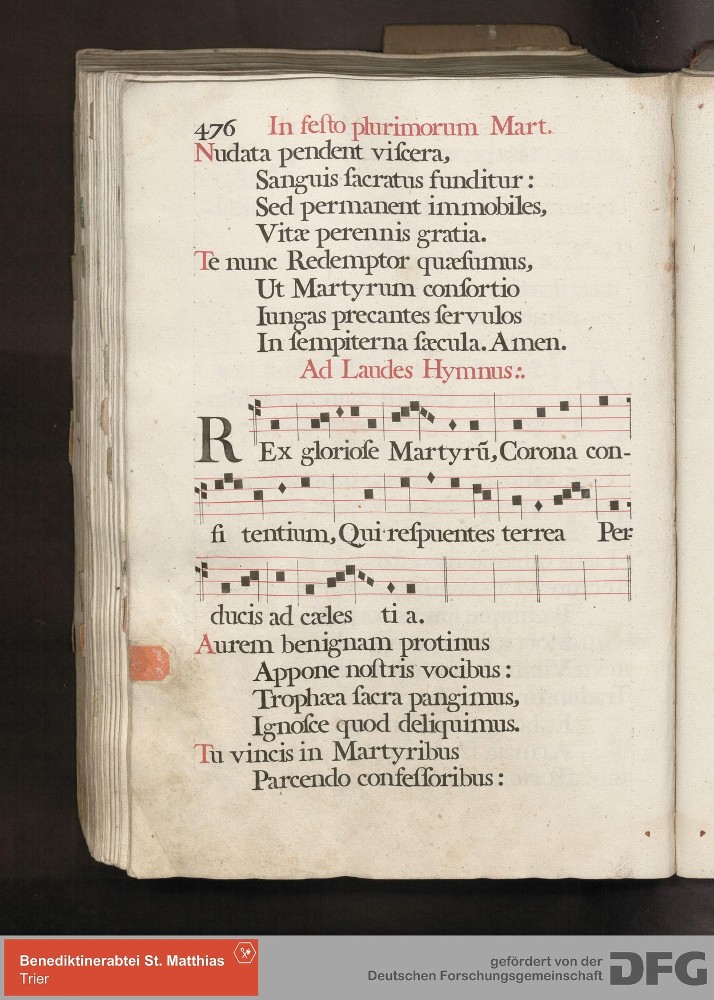 476 In feſto plurimorum Mart.
Nudata pendent viſcera,
Sanguis ſacratus funditur:
Sed permanent immobiles,
Vitæ perennis gratia.
Te nunc Redemptor quæſumus,
Ut Martyrum conſortio
Iungas precantes ſervulos
In ſempiterna ſæcula. Amen.
Ad Laudes Hymnus:.
REx glorioſe Martyrũ, Corona con-
fi tentium, Qui reſpuentes terrea Per-
ducis ad cæles ti a.
Aurem benignam protinus
Appone noſtris vocibus:
Trophæa ſacra pangimus,
Ignoſce quod deliquimus.
Tu vincis in Martyribus
Parcendo confeſſoribus:
Benediktinerabtei St. Matthias
Trier
gefördert von der
Deutschen Forschungsgemeinschaft
DFG